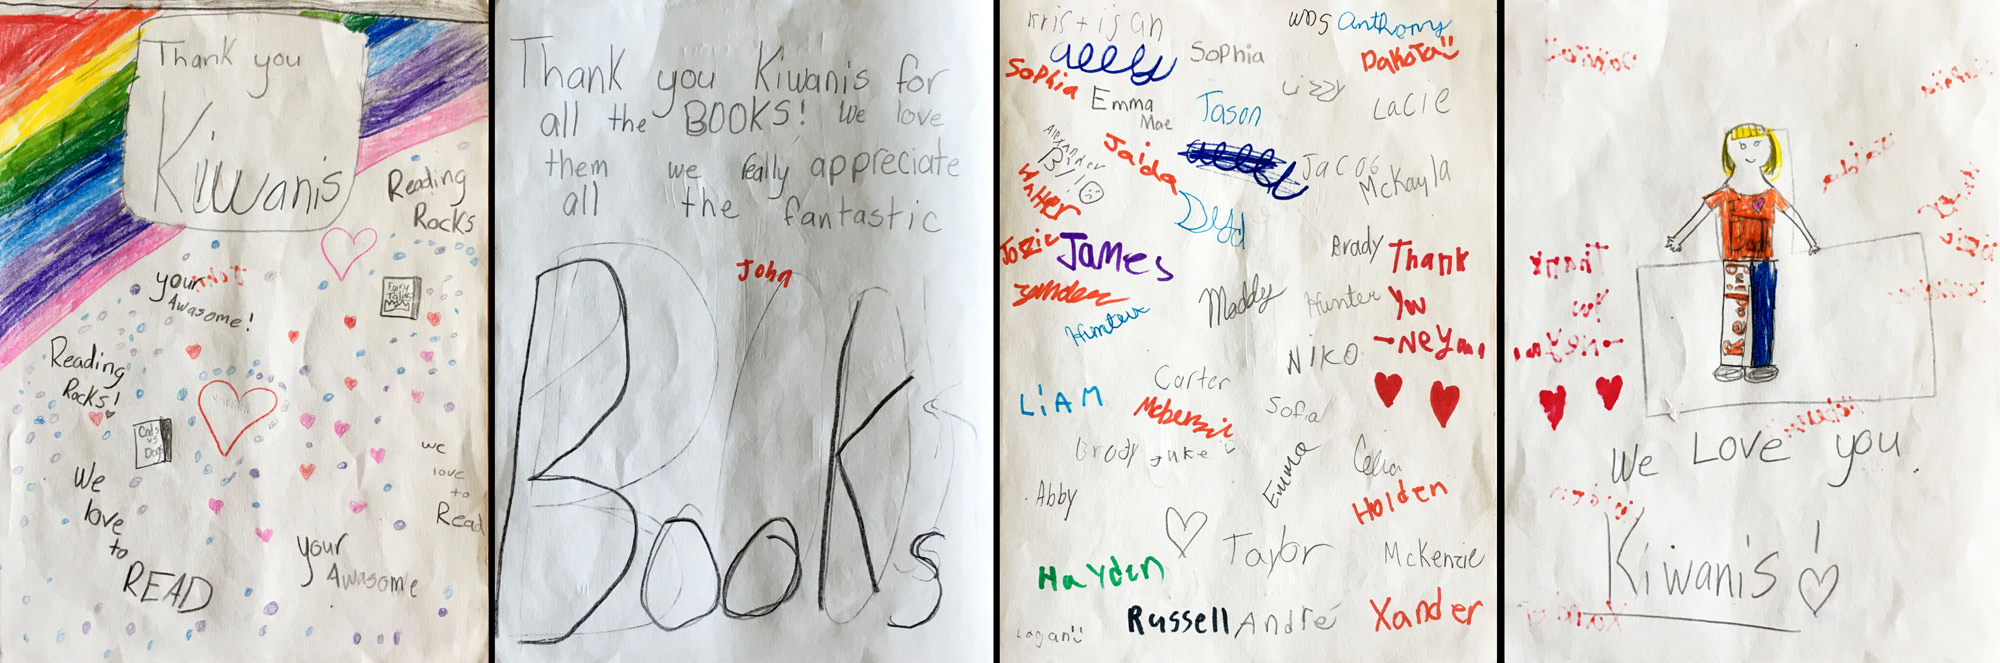 Thank you
Kiwanis
Reading
Rocks
your
Awasome!
Fairy
Tales
Reading
Rocks!
Cats
vs
Dogs
We
love
to
READ
we
love
to
Read
your
Awasome
Thank you Kiwanis for
all the BOOKS! We love
them we really appreciate
all the fantastic
John
BOOKs
Kristijan
Anthony
Sophia
Dakota
Sophia
Emma
Mae
Jason
Lizzy
Lacie
Jaida
Jacob
McKayla
Hunter
Jozie
James
Brady
Thank
You
Maddy
Hunter
Hunter
NIKO
LiAM
Carter
Sofia
Brody
Juke
Abby
Emma
Celia
Holden
Hayden
Taylor
McKenzie
Russell
André
Xander
Logan
Reading
We Love you
Kiwanis!